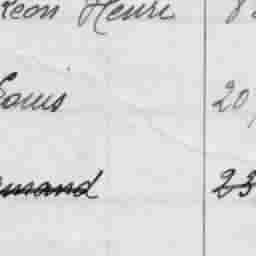 Léon Henri 8
Louis 20
Armand 23